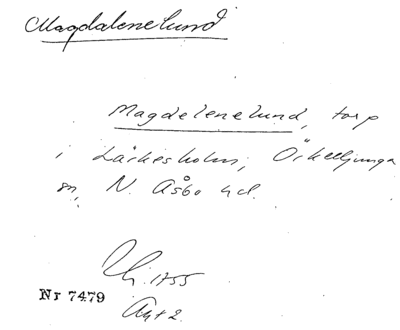 Magdalenelund
Magdelenelund, torp
i Lärkesholm, Örkelljunga
sn, N. Åsbo hd.
1755
Nr 7479
Akt 2